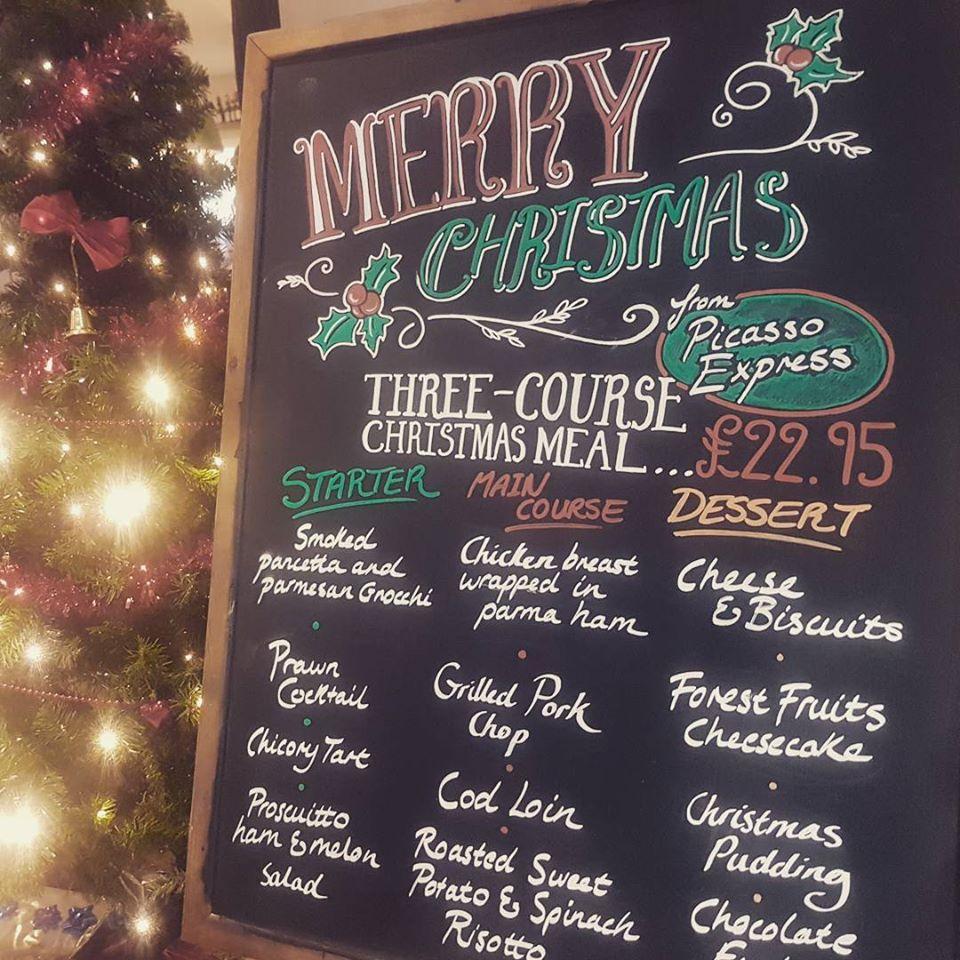 MERRY
CHRISTMAS
from
Picasso
Express
THREE-COURSE
CHRISTMAS MEAL...£22.95
STARTER
Smoked
pancetta and
parmesan Gnocchi
Prawn
Cocktail
Chicory Tart
Proscuitto
ham & melon
Salad
MAIN
COURSE
Chicken breast
wrapped in
parma ham
Grilled Pork
Chop
Cod Loin
Roasted Sweet
Potato & Spinach
Risotto
DESSERT
Cheese
& Biscuits
Forest Fruits
Cheesecake
Christmas
Pudding
Chocolate